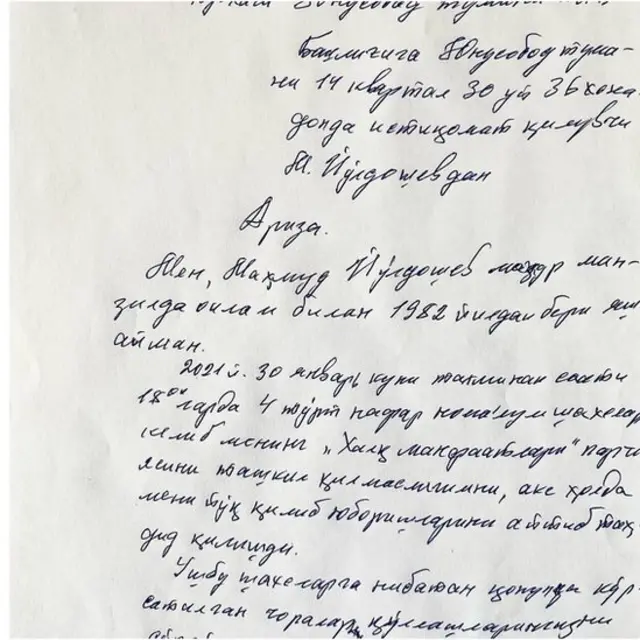 Юнусобод тумани
Бошлиғига Юнусобод тума-
ни 14 квартал 30 уй 36 хона-
донда истиқомат қилувчи
М. Йўлдошевдан
Ариза.
Мен, Маҳмуд Йўлдошев мазкур ман-
зилда оилам билан 1982 йилдан бери яш
айман.
2021 й. 30 январь куни тахминан соати
18 ⁰⁰ ларда 4 тўрт нафар номаълум шахслар
келиб менинг „Халқ манфаатлари" парти
ясини ташкил қилмаслигимни, акс ҳолда
мени йўқ қилиб юборишларини айтиб таҳ
дид қилишди.
Ушбу шахсларга нисбатан қонуний кўр-
сатилган чоралар қўллашларингизни